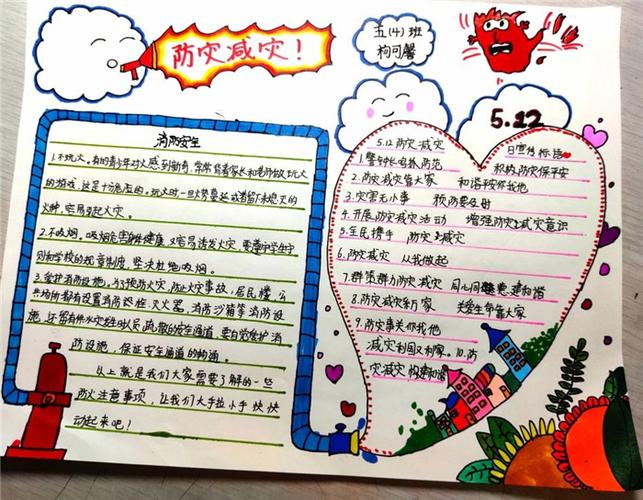 防灾减灾！
五(4)班
柯可馨
5.12
消防安全
1.不玩火。有的青少年对火感到新奇，常常背着家长和老师做玩火
的游戏，这是十分危险的。玩火时一旦火势蔓延或者留下未熄灭的
火种，容易引起火灾。
2.不吸烟。吸烟危害身体健康，又容易诱发火灾。要遵守中学生守
则和学校的规章制度，坚决杜绝吸烟。
3.爱护消防设施。为了预防火灾，防止火灾事故，居民楼、公
共场所都有设置消防栓、灭火器、消防沙箱等消防设
施，还留有供火灾发生时人员疏散的安全通道，要自觉爱护消
防设施，保证安全通道的畅通。
以上就是我们大家需要了解的一些
防火注意事项，让我们大手拉小手快快
动起来吧！
5.12防灾减灾
日宣传标语
1.警钟长鸣抓防范 积极防灾保平安
2.防灾减灾靠大家 和谐平安你我他
3.灾害无小事 预防要及时
4.开展防灾减灾活动 增强防灾减灾意识
5.全民携手 防灾减灾
6.防灾减灾 从我做起
7.群策群力防灾减灾 同心同德建和谐
8.防灾减灾千万家 关爱生命靠大家
9.防灾事关你我他
减灾利国又利家。10.防
灾减灾 构建和谐